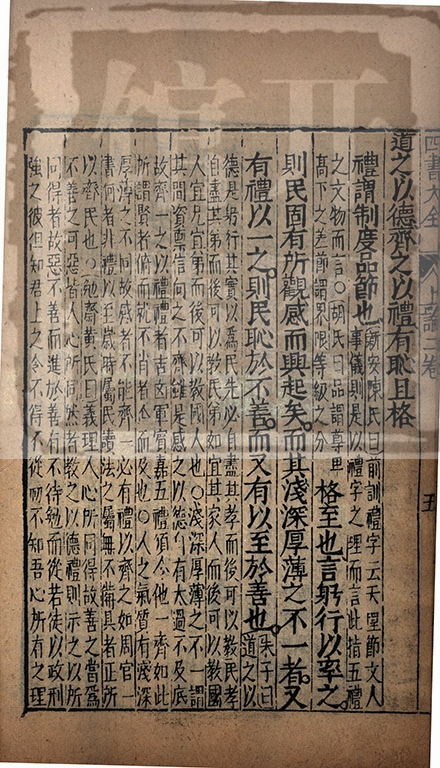 四書大全 上論二卷 五
道之以德齊之以禮有恥且格
禮謂制度品節也
新安陳氏曰前訓禮字云天理節文人
事儀則是以禮字之理而言此指五禮
之文物而言○胡氏曰品謂尊卑
髙下之差節謂界限等級之分
格至也言躬行以率之
則民固有所觀感而興起矣而其淺深厚薄之不一者又
有禮以一之則民恥於不善而又有以至於善也
朱子曰
道之以
德是躬行其實以爲民先必自盡其孝而後可以教民孝
自盡其弟而後可以教民弟如宜其家人而後可以教國
人宜兄宜弟而後可以教國人也○淺深厚薄之不一謂
其間資稟信向之不齊雖是感之以德自有太過不及底
故齊一之以禮禮者吉凶軍賔嘉五禮須令他一齊如此
所謂賢者俯而就不肖者企而及也○人之氣質有淺深
厚薄之不同故感者不能齊一必有禮以齊之如周官一
書何者非禮以至歳時屬民讀法之屬無不備具者正所
以齊民也○勉齋黄氏曰義理人心所同得故善之當爲
不善之可惡皆人心所同然者教之以德禮則示之以所
同得者故惡不善而進於善有不待勉而從若徒以政刑
強之彼但知君上之令不得不從初不知吾心所有之理